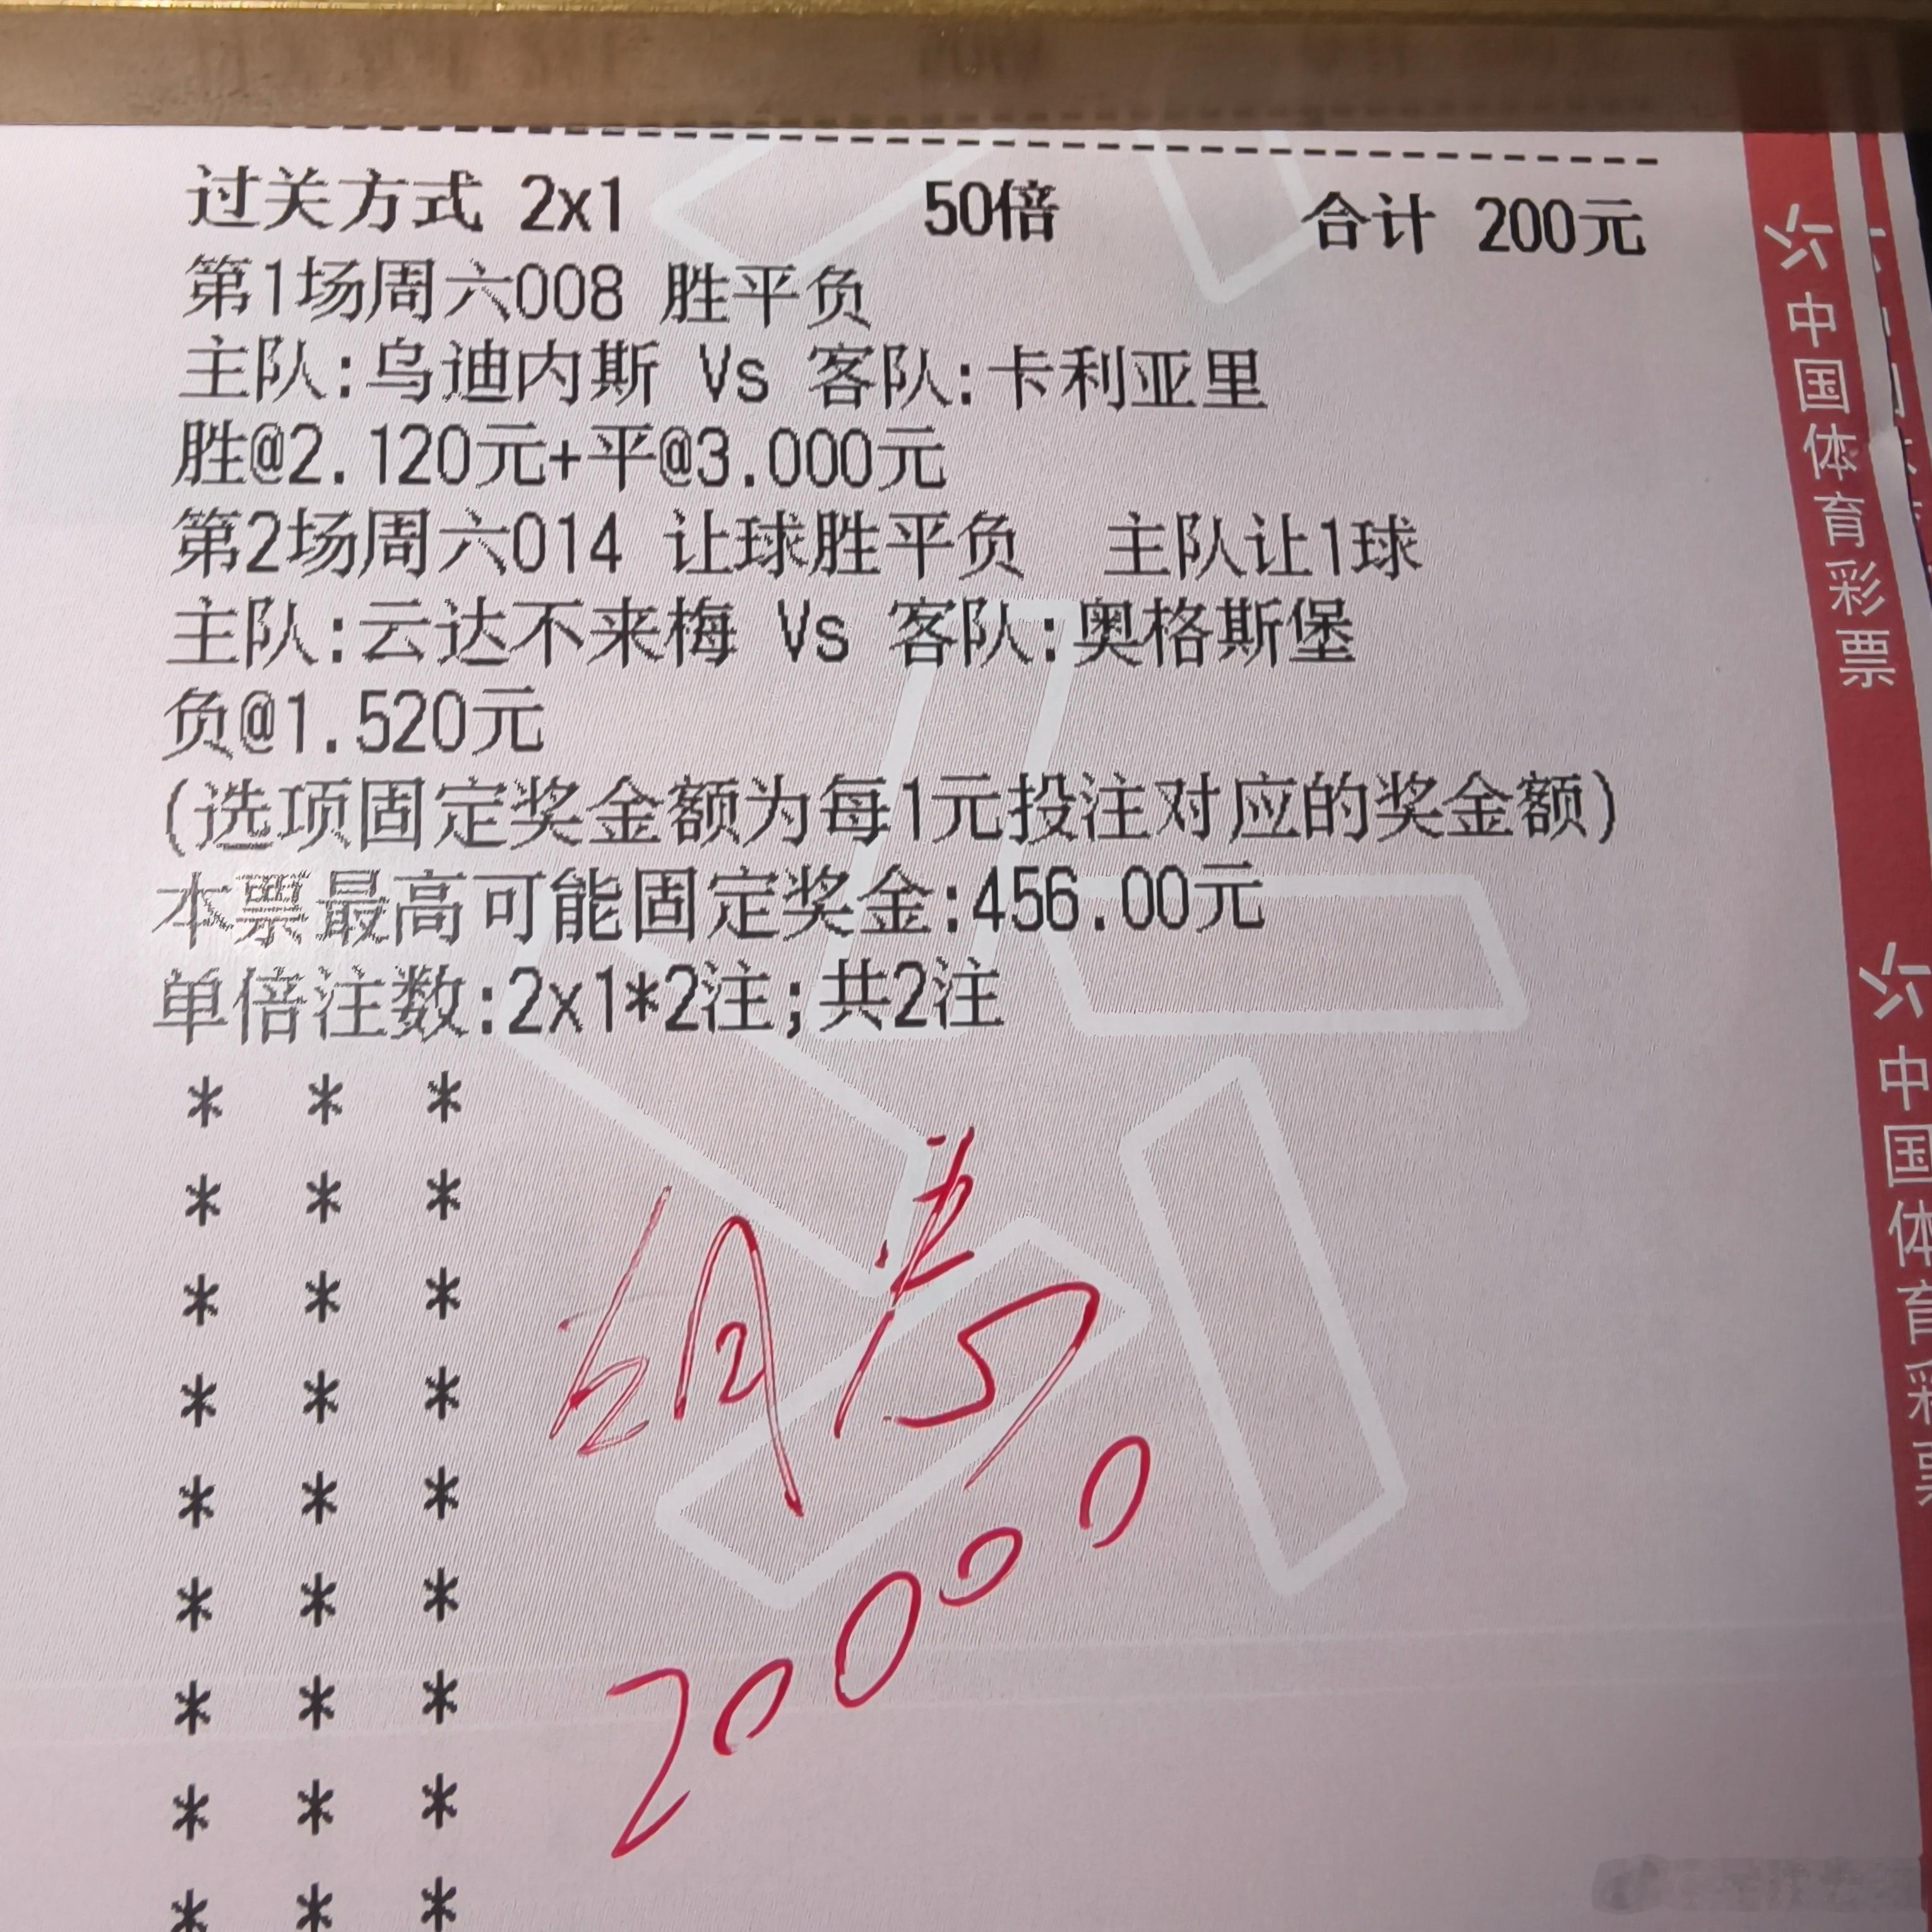 过关方式 2x1 50倍 合计 200元
第1场周六008 胜平负
主队:乌迪内斯 Vs 客队:卡利亚里
胜@2.120元+平@3.000元
第2场周六014 让球胜平负 主队让1球
主队:云达不来梅 Vs 客队:奥格斯堡
负@1.520元
(选项固定奖金额为每1元投注对应的奖金额)
本票最高可能固定奖金:456.00元
单倍注数:2x1*2注;共2注
* * *
* * *
* * *
* * *
* * *
* * *
* * *
* * *
* * *
20000
中国体育彩票
中国体育彩票